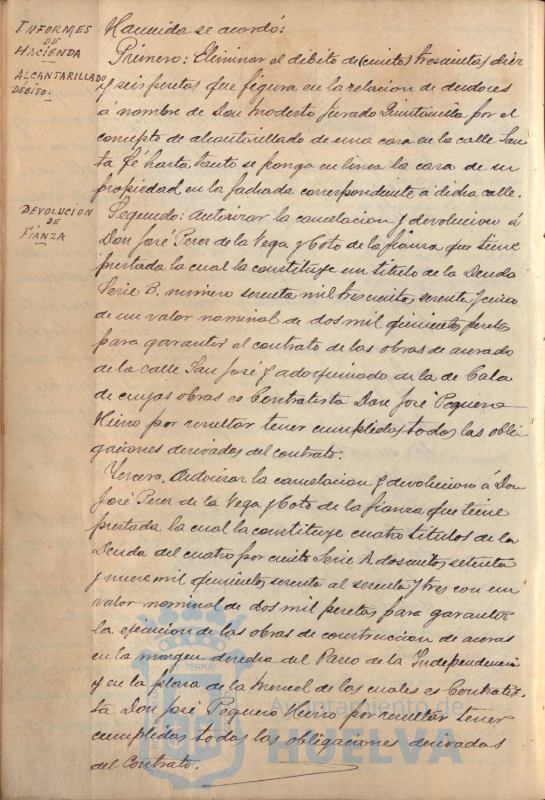 INFORMES
DE
HACIENDA
ALCANTARILLADO
DEBITO.
Hacienda se acordó:
Primero: Eliminar el débito de (cuatro) trescientas diez
y seis pesetas que figura en la relacion de deudores
á nombre de Don Modesto Jurado Quintanilla por el
concepto de alcantarillado de una casa en la calle San
ta Fé hasta tanto se ponga en linea la casa de su
propiedad en la fachada correspondiente á dicha calle.
DEVOLUCION
DE
FIANZA
Segundo: Autorizar la cancelacion y devolucion á
Don José Perez de la Vega y Coto de la fianza que tiene
prestada la cual la constituye un titulo de la Deuda
Serie B. numero sesenta mil trescientos sesenta y cinco
de un valor nominal de dos mil quinientas pesetas
para garantir el contrato de las obras de acerado
de la calle San José y adoquinado de la de Cala
de cuyas obras es Contratista Don José Peguero
Hierro por resultar tener cumplidas todas las obli
gaciones derivadas del contrato:
Tercero. Autorizar la cancelacion y devolucion á Don
José Perez de la Vega y Coto de la fianza que tiene
prestada la cual la constituye cuatro titulos de la
Deuda del cuatro por ciento Serie A doscientos setenta
y nueve mil quinientos sesenta al sesenta y tres con un
valor nominal de dos mil pesetas para garantir
la ejecucion de las obras de construccion de aceras
en la margen derecha del Paseo de la Independencia
y en la plaza de la Merced de las cuales es Contratis-
ta Don José Peguero Hierro por resultar tener
cumplidas todas las obligaciones derivadas
del Contrato.
TERRÆ
Ayuntamiento de
HUELVA